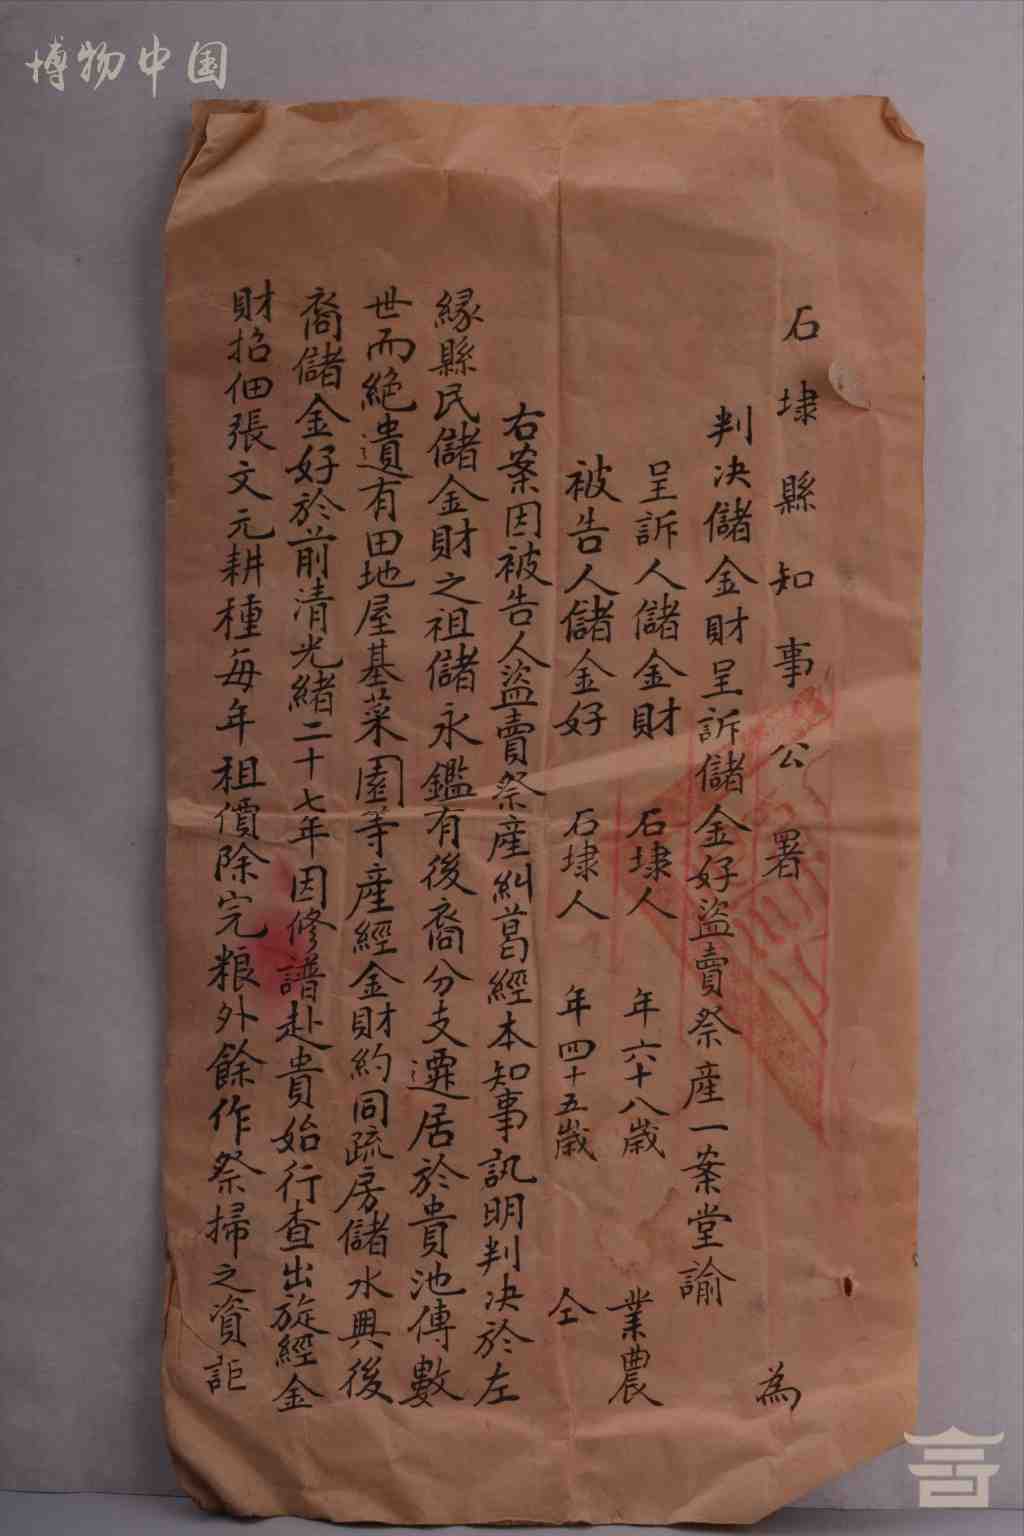 博物中国
石埭縣知事公署　為
判决儲金財呈訴儲金好盜賣祭產一案堂諭
呈訴人儲金財　石埭人　年六十八歲　業農
被告人儲金好　石埭人　年四十五歲　仝
右案因被告人盜賣祭產糾葛經本知事訊明判决於左
緣縣民儲金財之祖儲永鑑有後裔分支遷居於貴池傳數
世而絕遺有田地屋基菜園等產經金財約同疏房儲水興後
裔儲金好於前清光緒二十七年因修譜赴貴始行查出旋經金
財招佃張文元耕種每年租價除完粮外餘作祭掃之資詎